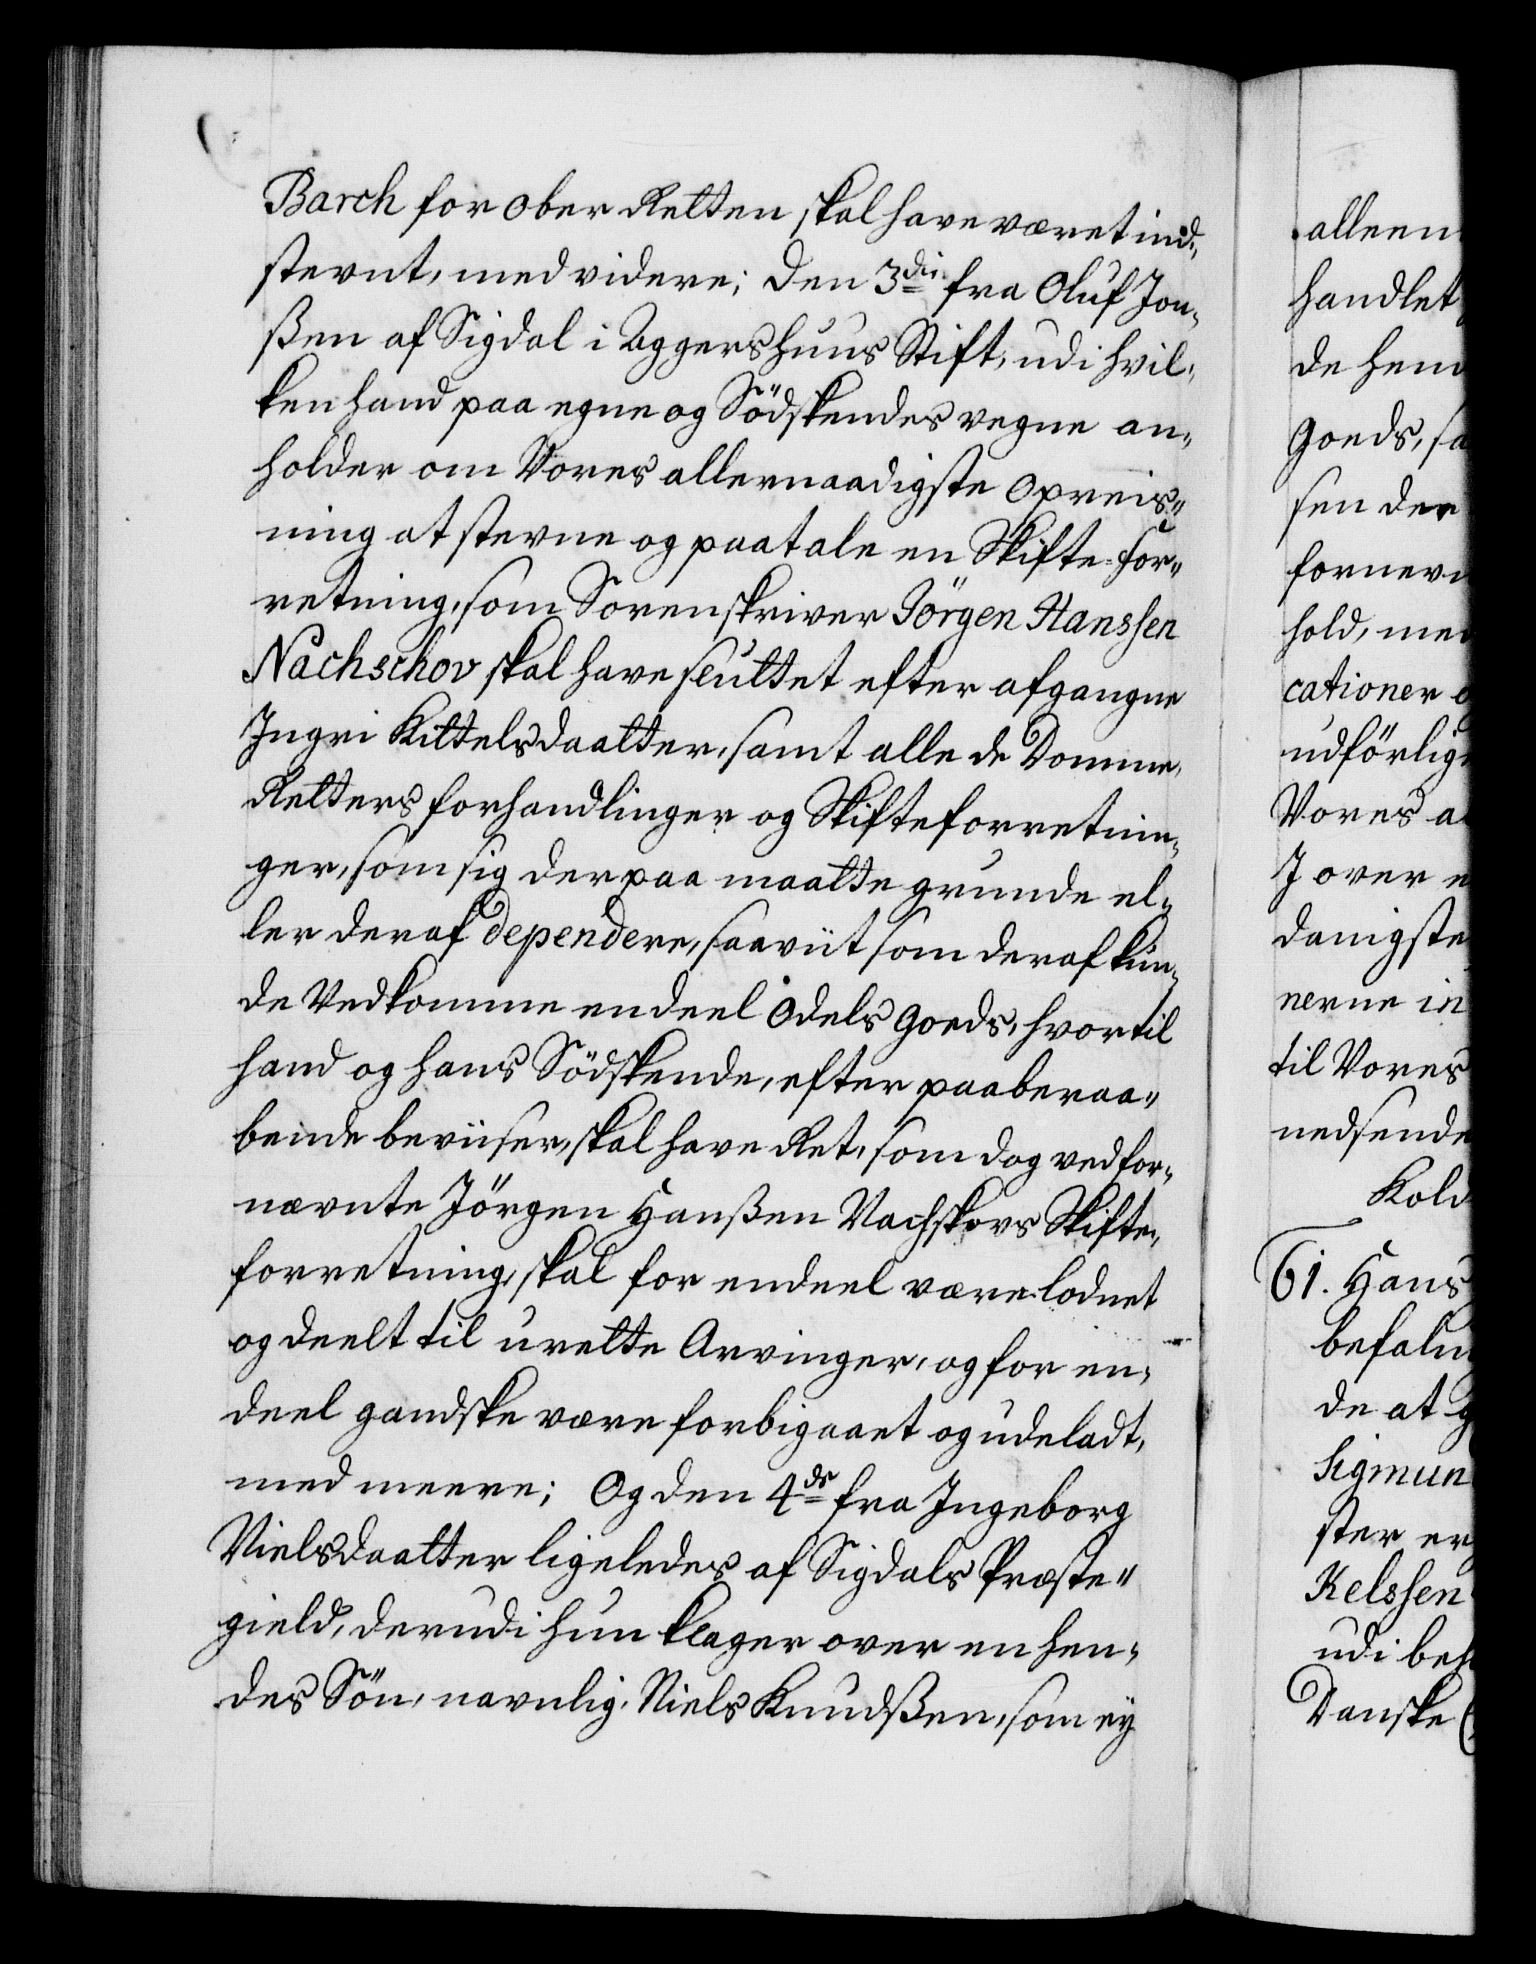 Barch for Ober Retten skal have været ind-
stevnt, med videre; Den 3die fra Oluf Jon-
ßen af Sigdal i Aggershuus Stift, udi hvil-
ken hand paa egne og Södskendes vegne an-
holder om Vores allernaadigste Opreis-
ning at stevne og paatale en Skifte-For-
retning, som Sorenskriver Jörgen Hanssen
Nachschov skal have sluttet efter afgangne
Ingri Kittelsdaatter, samt alle de Domme,
Retters forhandlinger og Skifteforretnin-
ger, som sig derpaa maatte grunde el-
ler deraf dependere, saaviit som deraf kun-
de Vedkomme endeel Odels Goeds, hvortil
hand og hans Södskende, efter paaberaa-
bende beviiser, skal have Ret, som dog ved for-
nævnte Jörgen Hanßen Nachskovs Skifte-
forretning, skal for endeel være lodnet
og deelt til urette Arvinger, og for en-
deel gandske være forbigaaet og udeladt,
med meere; Og den 4de fra Ingeborg
Nielsdaatter ligeledes af Sigdals Præste-
gield, derudi hun klager over en hen-
des Sön, navnlig. Niels Knudßen, som ey
alleen
handlet
de hen
Goeds, sa
sen der
fornevn
hold, med
cationer o
udförlig
Vores a
I over e
danigste
nerne in
til Vores
nedsende
Kold
61. Hans
befalu
de at g
Sigmun
ster er
Kelssen
udi beh
Danske